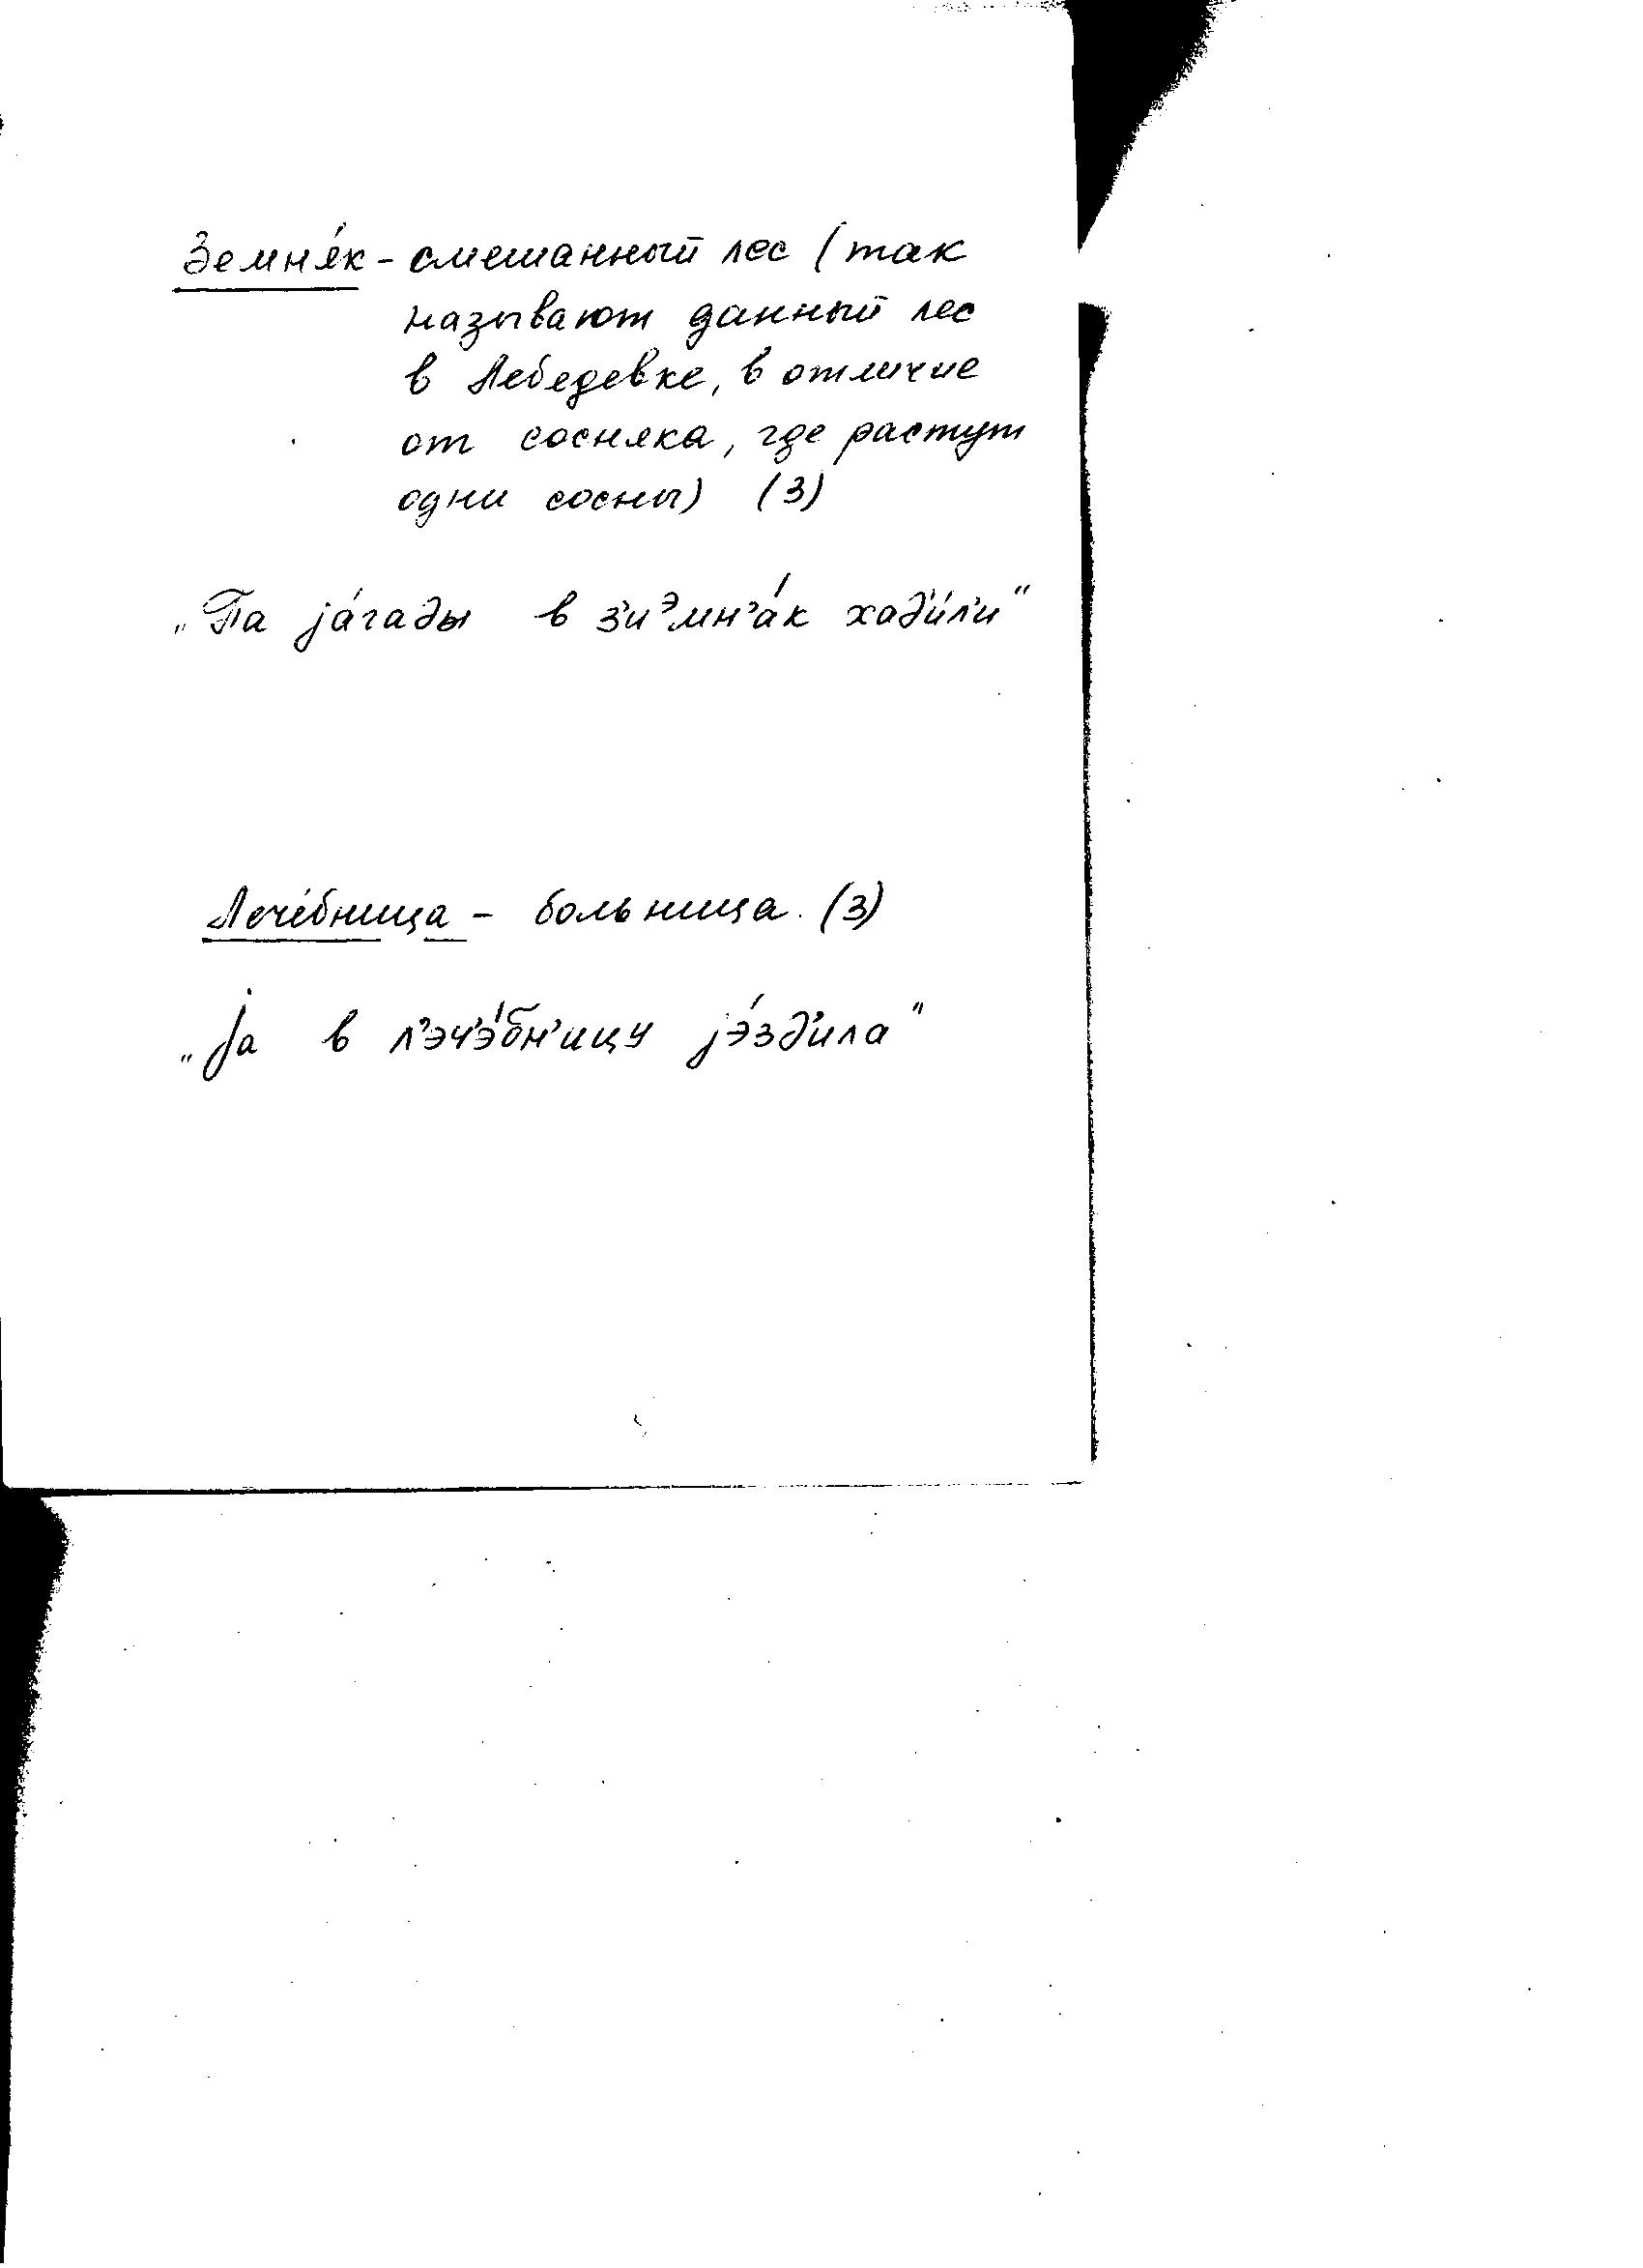 Земня́к - смешанный лес (так
называют данный лес
в Лебедевке, в отличие
от сосняка, где растут
одни сосны) (3)
„Па jа́гады в з'иэмн'а́к хад'и́л'и“
Лече́бница - больница. (3)
„Ja в л'эч'э́бн'ицу jэ́зд'ила“